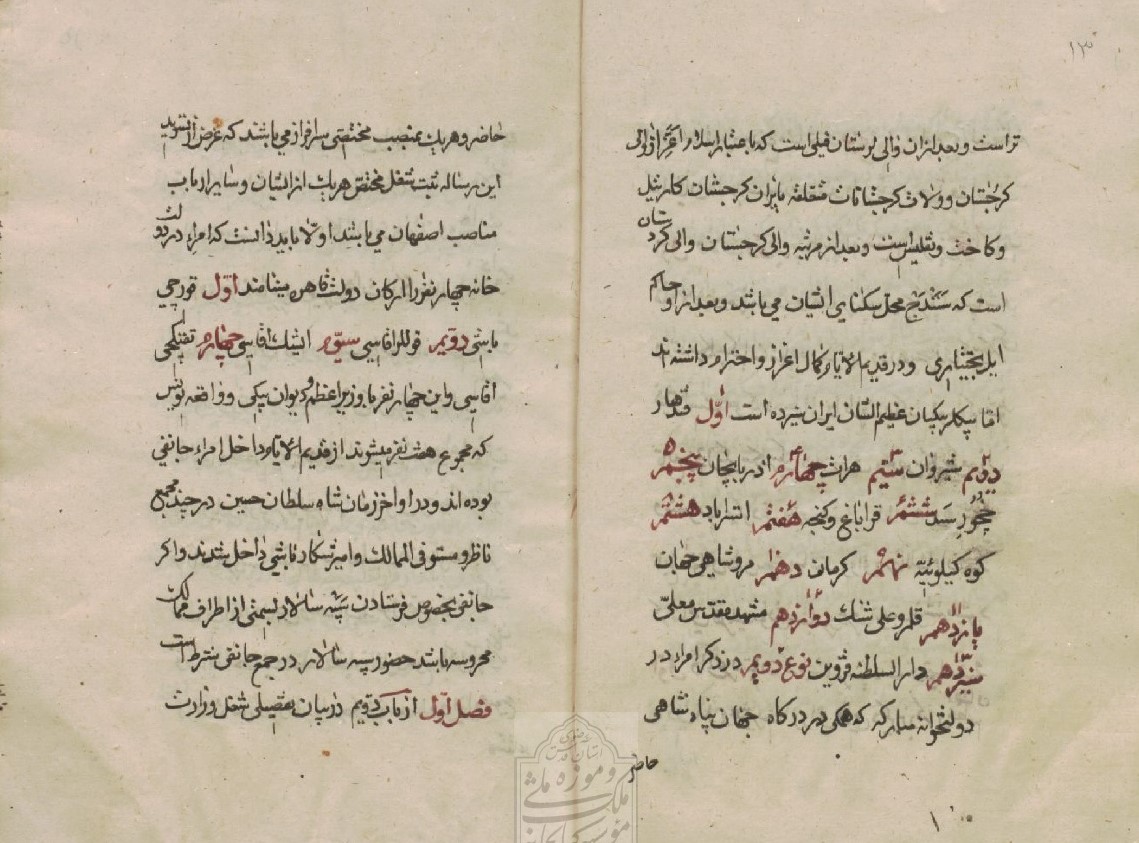 ۱۳
تر است و بعد از ان والی لرستان فیلی است که باعتبار اسلام اعز از والی
کرجستان و ولات کرجستانات متعلقه بایران کرجستان کارتیل
و کاخت و تفلیس است و بعد از مرتبه والی کرجستان والی کردستان
است که سنندج محل سکنای ایشان می باشد و بعد از او حاکم
ایل بختیاری و در قدیم الایام کمال اعزاز و احترام داشته اند
اما بیکلربیکیان عظیم الشان ایران سیزده است اوّل قندهار
دویم شیروان سیّم هرات چهارم اذربایجان پنجم
چخور سعد ششم قراباغ و کنجه هفتم استراباد هشتم
کوه کیلوئیه نهم کرمان دهم مرو شاهی جهان
یازدهم قلمرو علی شکر دوازدهم مشهد مقدس معلّی
سیزدهم دار السلطنه قزوین نوع دویم در ذکر امراء در
دولتخوانه مبارکه که همکی در درکاه جهان پناه شاهی
حاضر
۱۰
حاضر و هریک بمنصب مختصی سرافراز می باشند که غرض از تسوید
این رساله ثبت شغل مختص هریک از ایشان و سایر ارباب
مناصب اصفهان می باشد اولا باید دانست که امراء در دولت
خانه چهار نفر را ارکان دولت قاهره مینامند اوّل قورچی
باشی دویم قوللر اقاسی سیّوم ایشک اقاسی چهارم تفنکچی
اقاسی و این چهار نفر با وزیر اعظم و دیوان بیکی و واقعه نویس
که مجموع هفت نفر میشوند از قدیم الایام داخل امراء جانقی
بوده اند و در اواخر زمان شاه سلطان حسین در چند مجمع
ناظر و مستوفی الممالک و امیر شکار باشی داخل شدند و اکر
جانقی بخصوص فرستادن سپه سالار بسمتی از اطراف ممالک
محروسه باشد حضور سپه سالار در جمع جانقی شرط است
فصل اوّل از باب دویم در بیان تفصیلی شغل وزارت